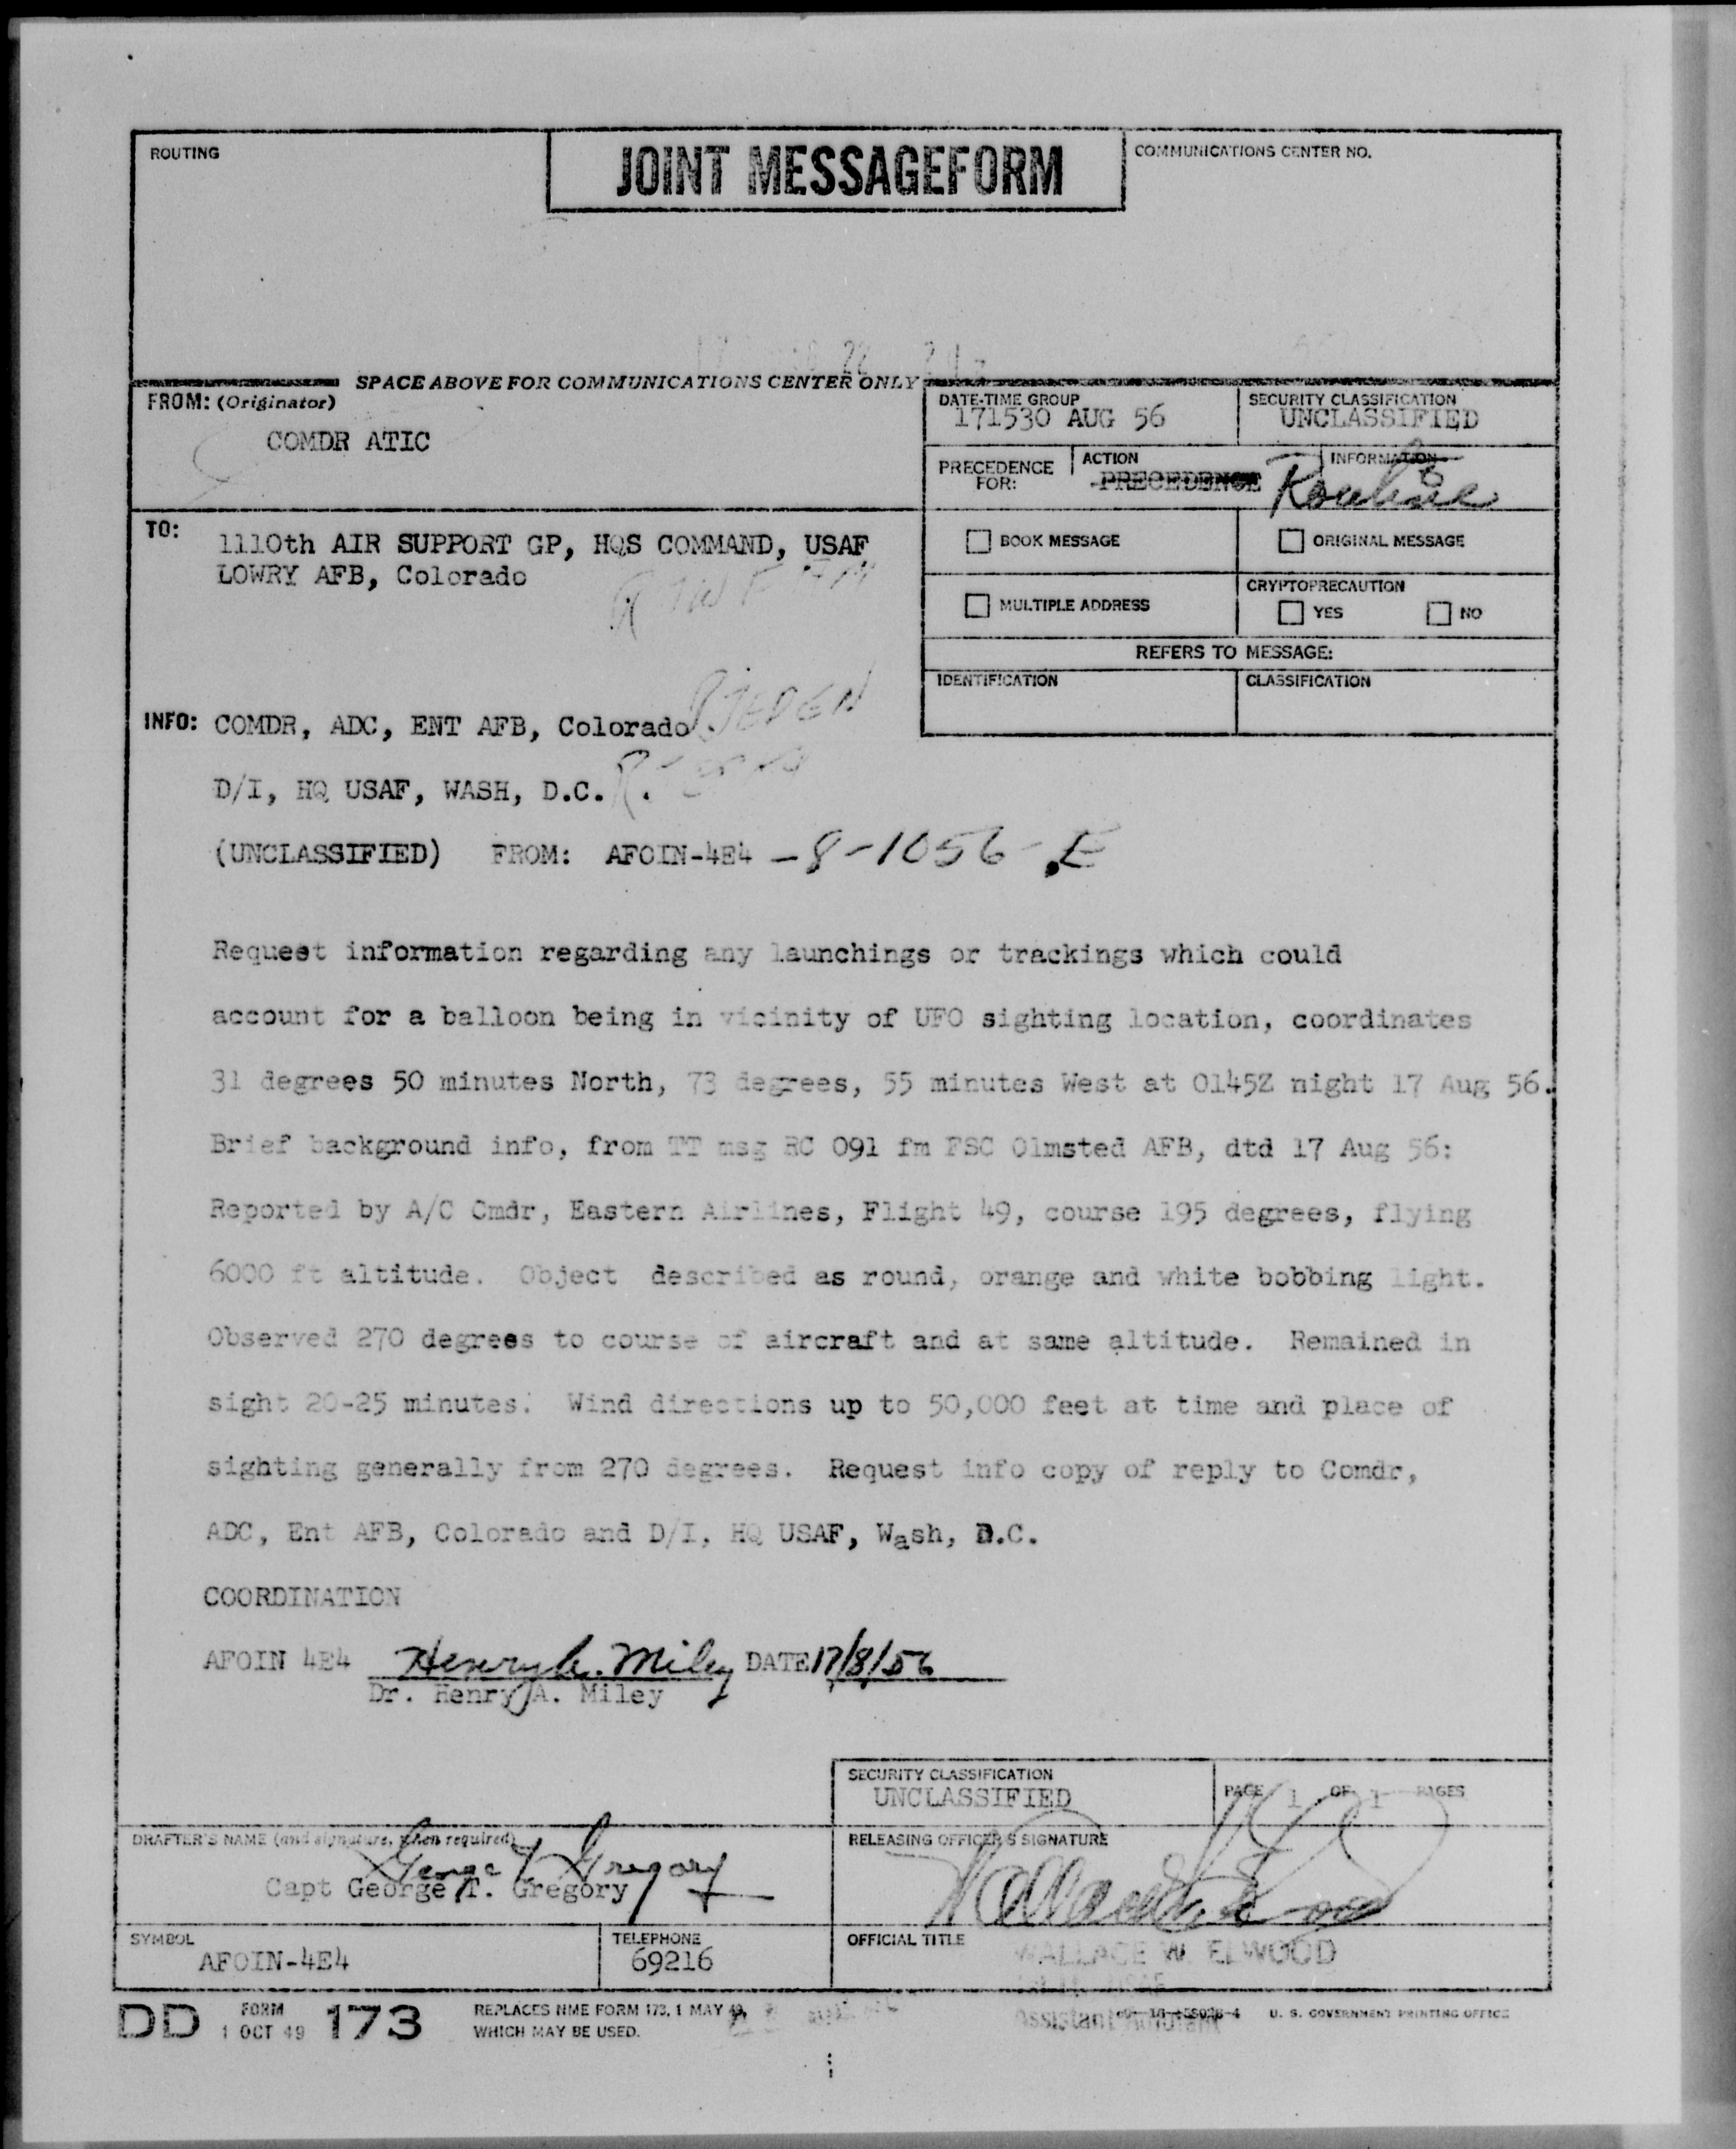 ROUTING
JOINT MESSAGEFORM
COMMUNICATIONS CENTER NO.
SPACE ABOVE FOR COMMUNICATIONS CENTER ONLY
FROM: (Originator)
COMDR ATIC
DATE-TIME GROUP
171530 AUG 56
SECURITY CLASSIFICATION
UNCLASSIFIED
PRECEDENCE FOR:
ACTION
PRECEDENCE
INFORMATION
Routine
TO:
1110th AIR SUPPORT GP, HQS COMMAND, USAF
LOWRY AFB, Colorado
BOOK MESSAGE
ORIGINAL MESSAGE
MULTIPLE ADDRESS
CRYPTOPRECAUTION
YES NO
REFERS TO MESSAGE:
IDENTIFICATION
CLASSIFICATION
INFO: COMDR, ADC, ENT AFB, Colorado RJEDEN
D/I, HQ USAF, WASH, D.C.
(UNCLASSIFIED) FROM: AFOIN-4E4 -8-1056-E
Request information regarding any launchings or trackings which could
account for a balloon being in vicinity of UFO sighting location, coordinates
31 degrees 50 minutes North, 73 degrees, 55 minutes West at 0145Z night 17 Aug 56.
Brief background info, from TT msg RC 091 fm FSC Olmsted AFB, dtd 17 Aug 56:
Reported by A/C Cmdr, Eastern Airlines, Flight 49, course 195 degrees, flying
6000 ft altitude. Object described as round, orange and white bobbing light.
Observed 270 degrees to course of aircraft and at same altitude. Remained in
sight 20-25 minutes. Wind directions up to 50,000 feet at time and place of
sighting generally from 270 degrees. Request info copy of reply to Comdr,
ADC, Ent AFB, Colorado and D/I, HQ USAF, Wash, D.C.
COORDINATION
AFOIN 4E4 Henry A. Miley DATE 17/8/56
Dr. Henry A. Miley
SECURITY CLASSIFICATION
UNCLASSIFIED
PAGE 1 OF 1 PAGES
DRAFTER'S NAME (and signature, when required)
George T Gregory
Capt George T. Gregory
RELEASING OFFICER'S SIGNATURE
SYMBOL
AFOIN-4E4
TELEPHONE
69216
OFFICIAL TITLE
WALLACE W. ELWOOD
Assistant Adjutant
DD FORM 1 OCT 49 173
REPLACES NME FORM 173, 1 MAY 49,
WHICH MAY BE USED.
U. S. GOVERNMENT PRINTING OFFICE